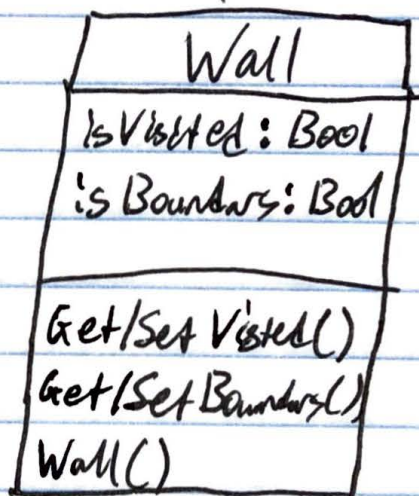 Wall
isVisited: Bool
isBoundary: Bool
Get/Set Visited()
Get/Set Boundary()
Wall()